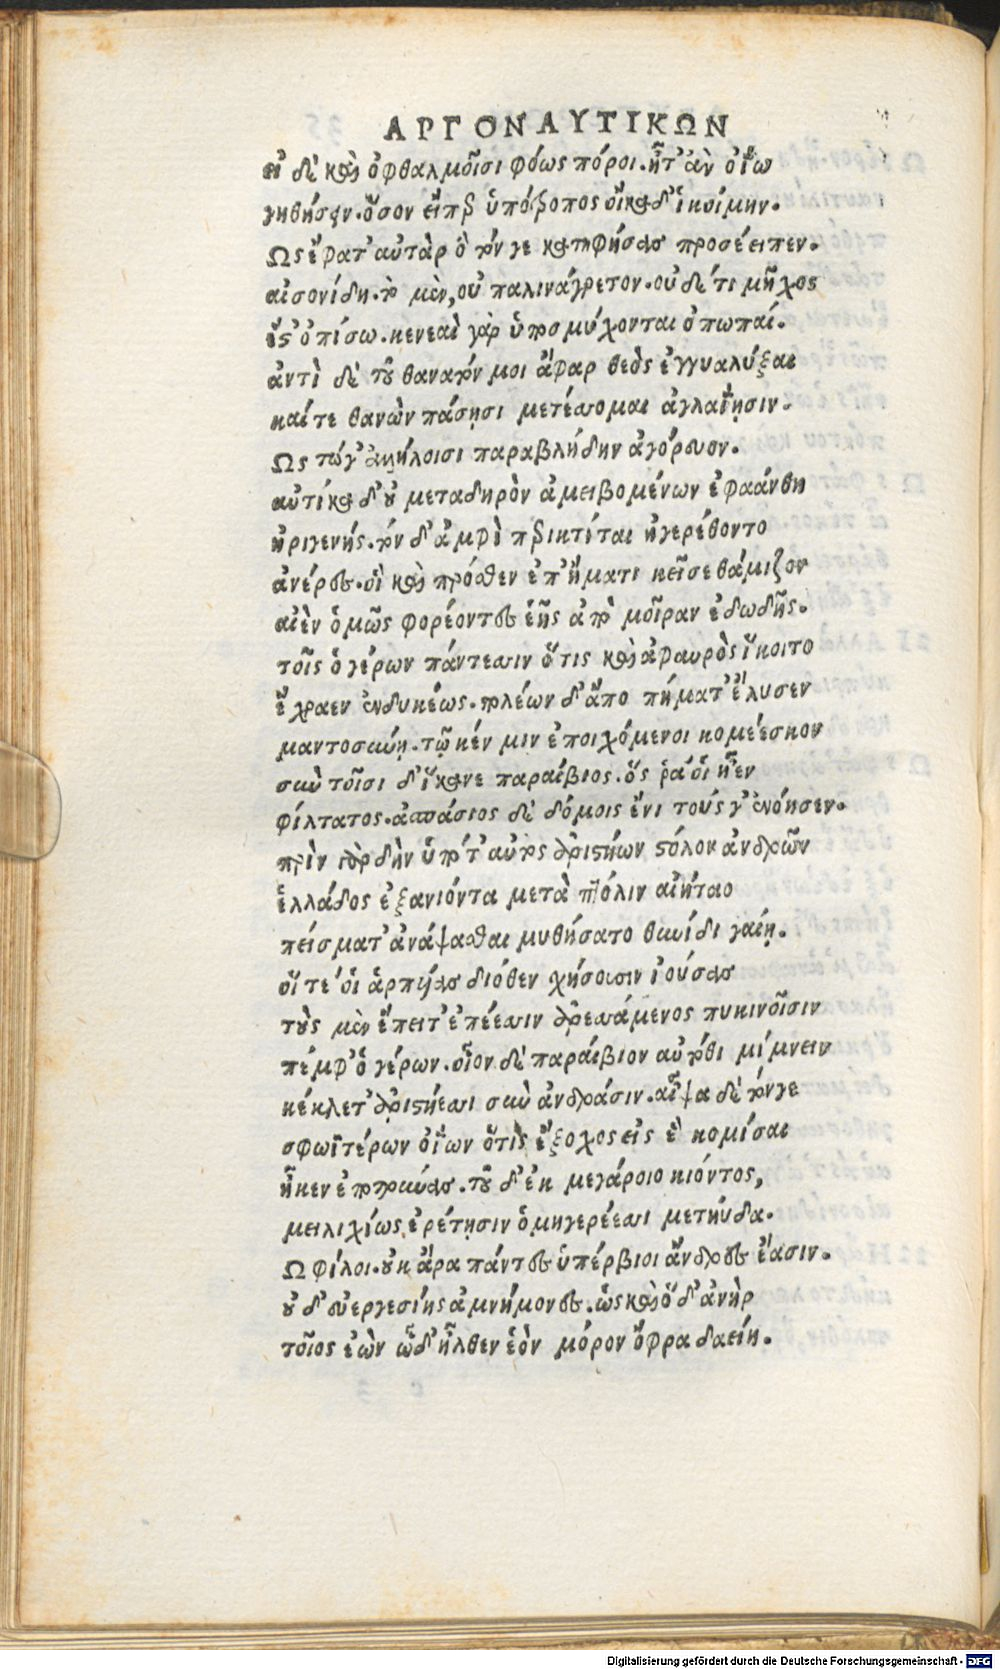 ΑΡΓΟΝΑΥΤΙΚΩΝ
εἰ δὲ καὶ ὀφθαλμοῖσι φόως πόροι. ἦτ' ἂν ὀΐω
γηθήσειν. ὅσον εἴπερ ὑπότροπος οἴκαδ' ἱκοίμην.
Ως ἔφατ' αὐτὰρ ὃ τόν γε κατηφήσας προσέειπεν.
αἰσονίδη. τὸ μὲν, οὐ παλινάγρετον. οὐδέ τι μῆχος
ἔστ' ὀπίσω. κενεαὶ γὰρ ὑποσμύχονται ὀπωπαί.
ἀντὶ δὲ τοῦ θανατόν μοι ἄφαρ θεὸς ἐγγυαλίξαι
καί τε θανὼν πάσῃσι μετέσσομαι ἀγλαΐῃσιν.
Ως τώγ' ἀλλήλοισι παραβλήδην ἀγόρευον.
αὐτίκα δ' οὐ μεταδηρὸν ἀμειβομένων ἐφαάνθη
ἠριγενής. τὸν δ' ἀμφὶ περικτίται ἠγερέθοντο
ἀνέρες. οἳ καὶ πρόσθεν ἐπ' ἤματι κεῖσε θάμιζον
αἰὲν ὁμῶς φορέοντες ἑῆς ἀπὸ μοῖραν ἐδωδῆς.
τοῖς ὁ γέρων πάντεσσιν ὅτις καὶ ἀφαυρὸς ἵκοιτο
ἔχραεν ἐνδυκέως. πολέων δ' ἄπο πήματ' ἔλυσεν
μαντοσύνῃ. τῷ κέν μιν ἐποιχόμενοι κομέεσκον
σὺν τοῖσι δ' ἵκανε παραίβιος. ὅς ῥά οἱ ἦεν
φίλτατος. ἀσπάσιος δὲ δόμοις ἔνι τούς γ' ἐνόησεν.
πρὶν γὰρ δὴν ὑπό τ' αὐτὸς ἀριστήων στόλον ἀνδρῶν
ἑλλάδος ἐξανιόντα μετὰ πτόλιν αἰήταο
πείσματ' ἀνάψασθαι μυθήσατο θυνίδι γαίῃ.
οἵ τέ οἱ ἁρπυίας διόθεν σχήσουσιν ἰούσας
τοὺς μὲν ἔπειτ' ἐπέεσσιν ἀρεσσάμενος πυκινοῖσιν
πέμφ' ὁ γέρων. οἶον δὲ παραίβιον αὐτόθι μίμνειν
κέκλετ' ἀριστήεσσι σὺν ἀνδράσιν. αἶψα δὲ τόνγε
σφωϊτέρων ὀΐων ὅτις ἔξοχος εἰς ἓ κομίσαι
ἧκεν ἐποτρύνας. τοῦ δ' ἐκ μεγάροιο κιόντος,
μειλιχίως ἐρέτῃσιν ὁμηγερέεσσι μετηύδα.
Ω φίλοι. οὐκ ἄρα πάντες ὑπέρβιοι ἄνδρες ἔασιν.
οὐδ' εὐεργεσίης ἀμνήμονες. ὣς καὶ ὅδ' ἀνὴρ
τοῖος ἐὼν ὧδ' ἦλθεν ἑὸν μόρον ὄφρα δαείη.
Digitalisierung gefördert durch die Deutsche Forschungsgemeinschaft - DFG